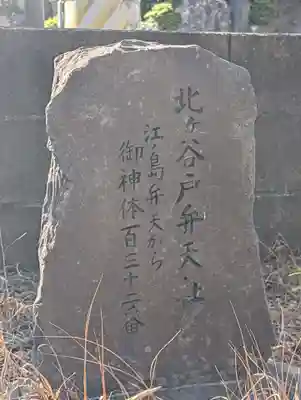 北ヶ谷戸弁天社
江ノ島弁天から
御神体百三十二番